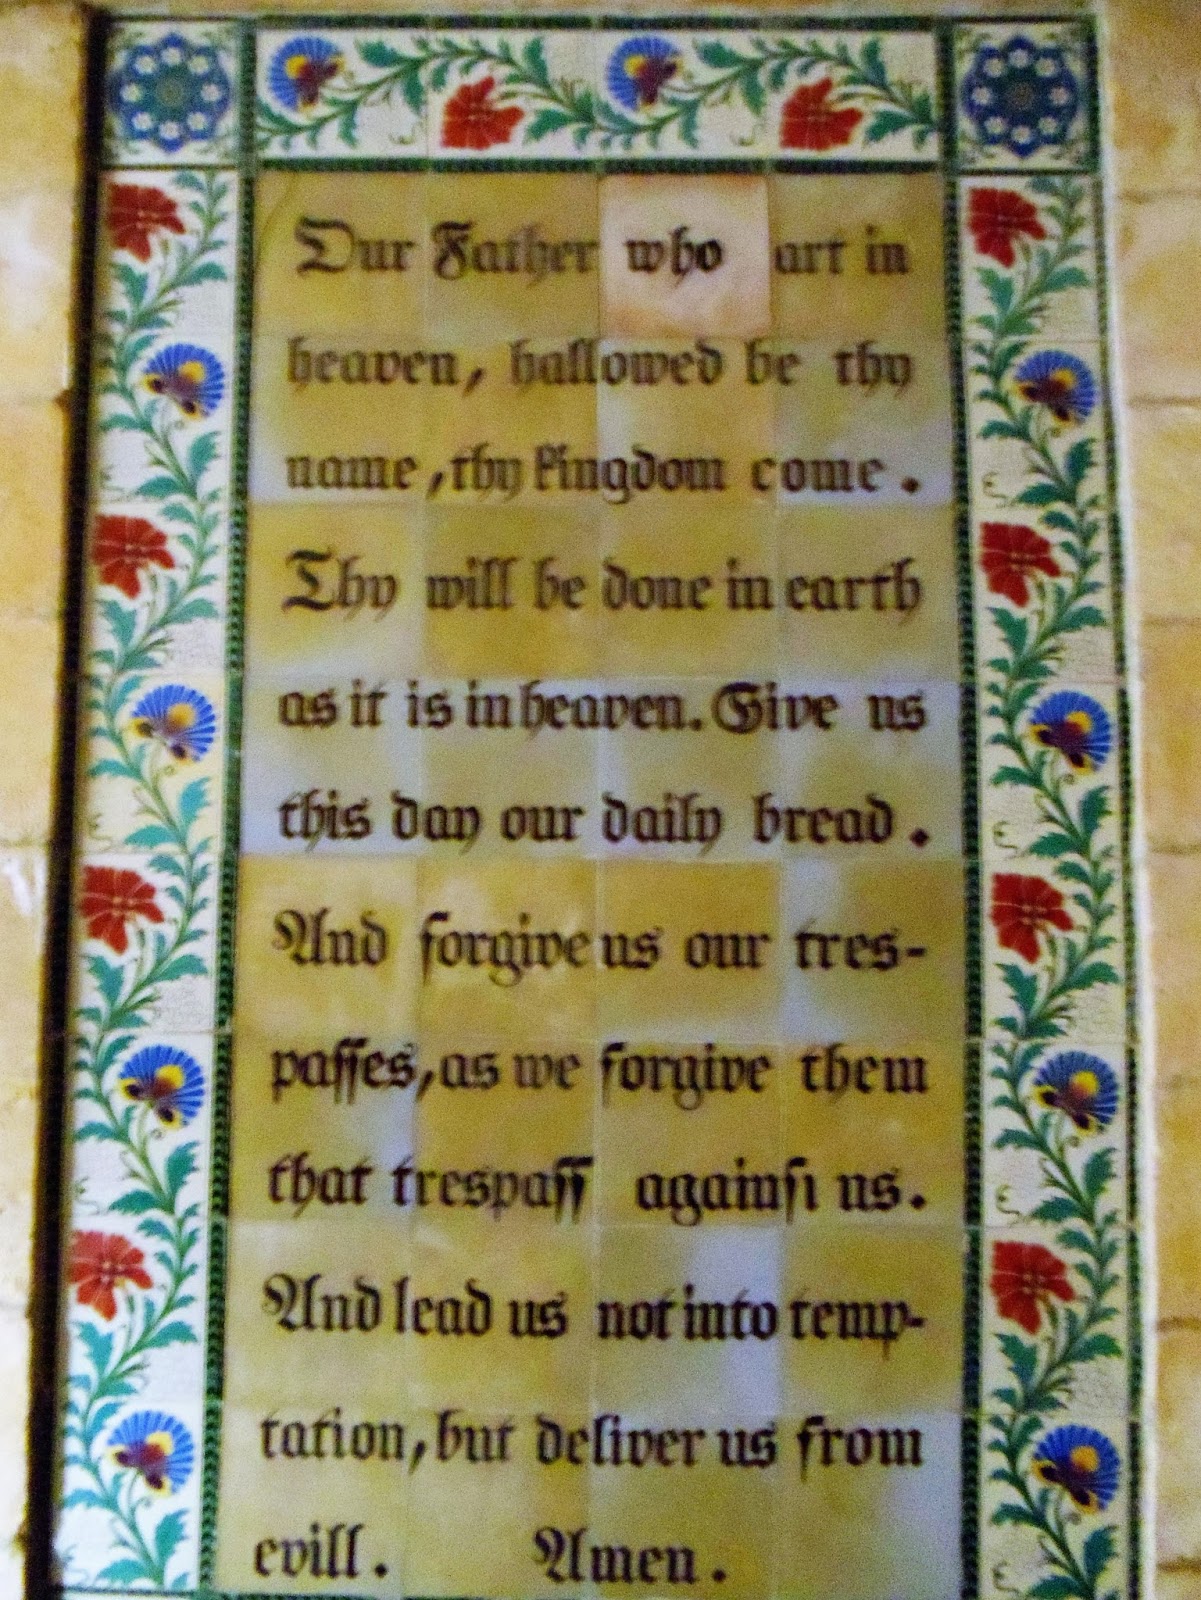 Our Father who art in
heaven, hallowed be thy
name, thy kingdom come.
Thy will be done in earth
as it is in heaven. Give us
this day our daily bread.
And forgive us our tres-
paſſes, as we forgive them
that trespaſſ againſt us.
And lead us not into temp-
tation, but deliver us from
evill. Amen.